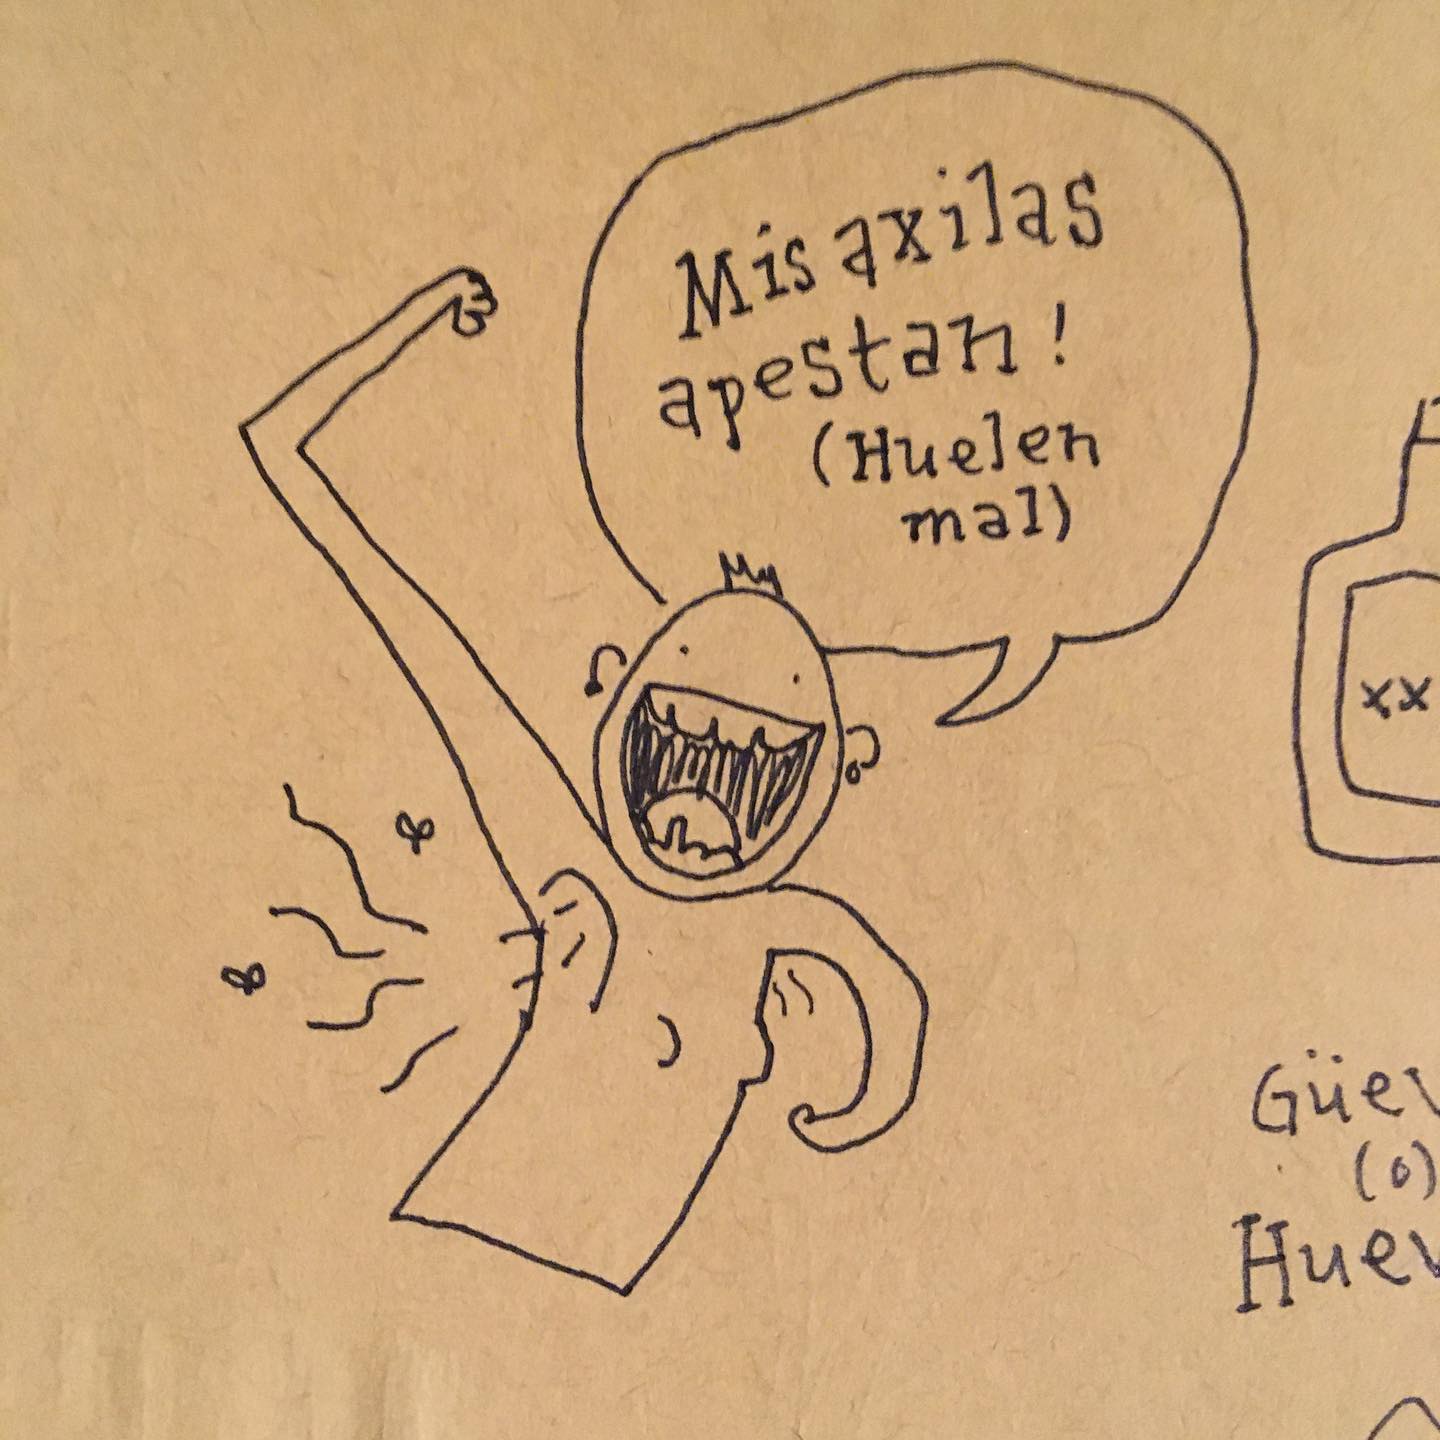 Mis axilas
apestan!
(Huelen
mal)
xx
Güev
(o)
Huev